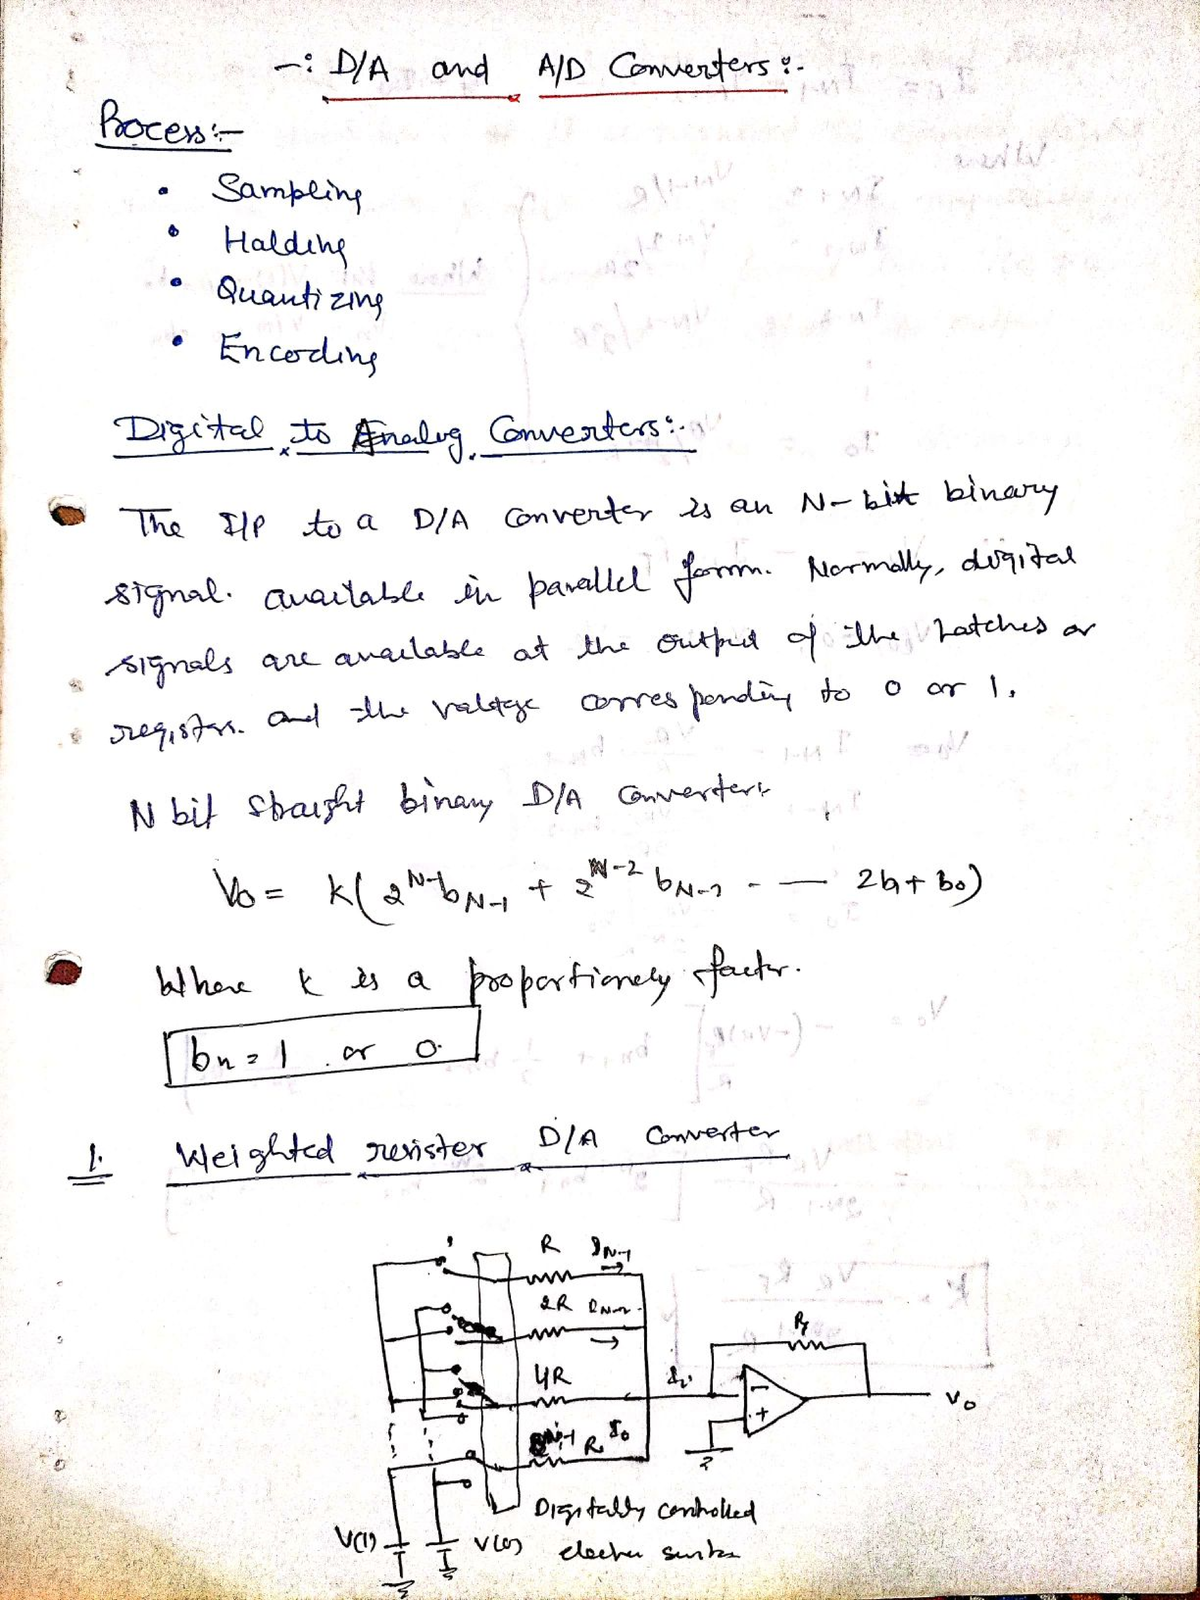 -: D/A and A/D Converters :-
Process :-
• Sampling
• Halding
• Quantizing
• Encoding
Digital to Analog Converters :-
The I/P to a D/A Converter is an N-bit binary
signal. available in parallel form. Normally, digital
signals are available at the output of the Latches or
registers. and the valtage corresponding to 0 or 1.
N bit straight binary D/A Converter:
V0 = K(2^N-1 bN-1 + 2^N-2 bN-2 - — 2b1 + b0)
Where K is a proportionely factor.
bn = 1 or 0.
1. Weighted resister D/A Converter
R IN-1
2R IN-2
Rf
4R Ii
V0
- +
R I0
Digitally controlled
V(1) V(0)